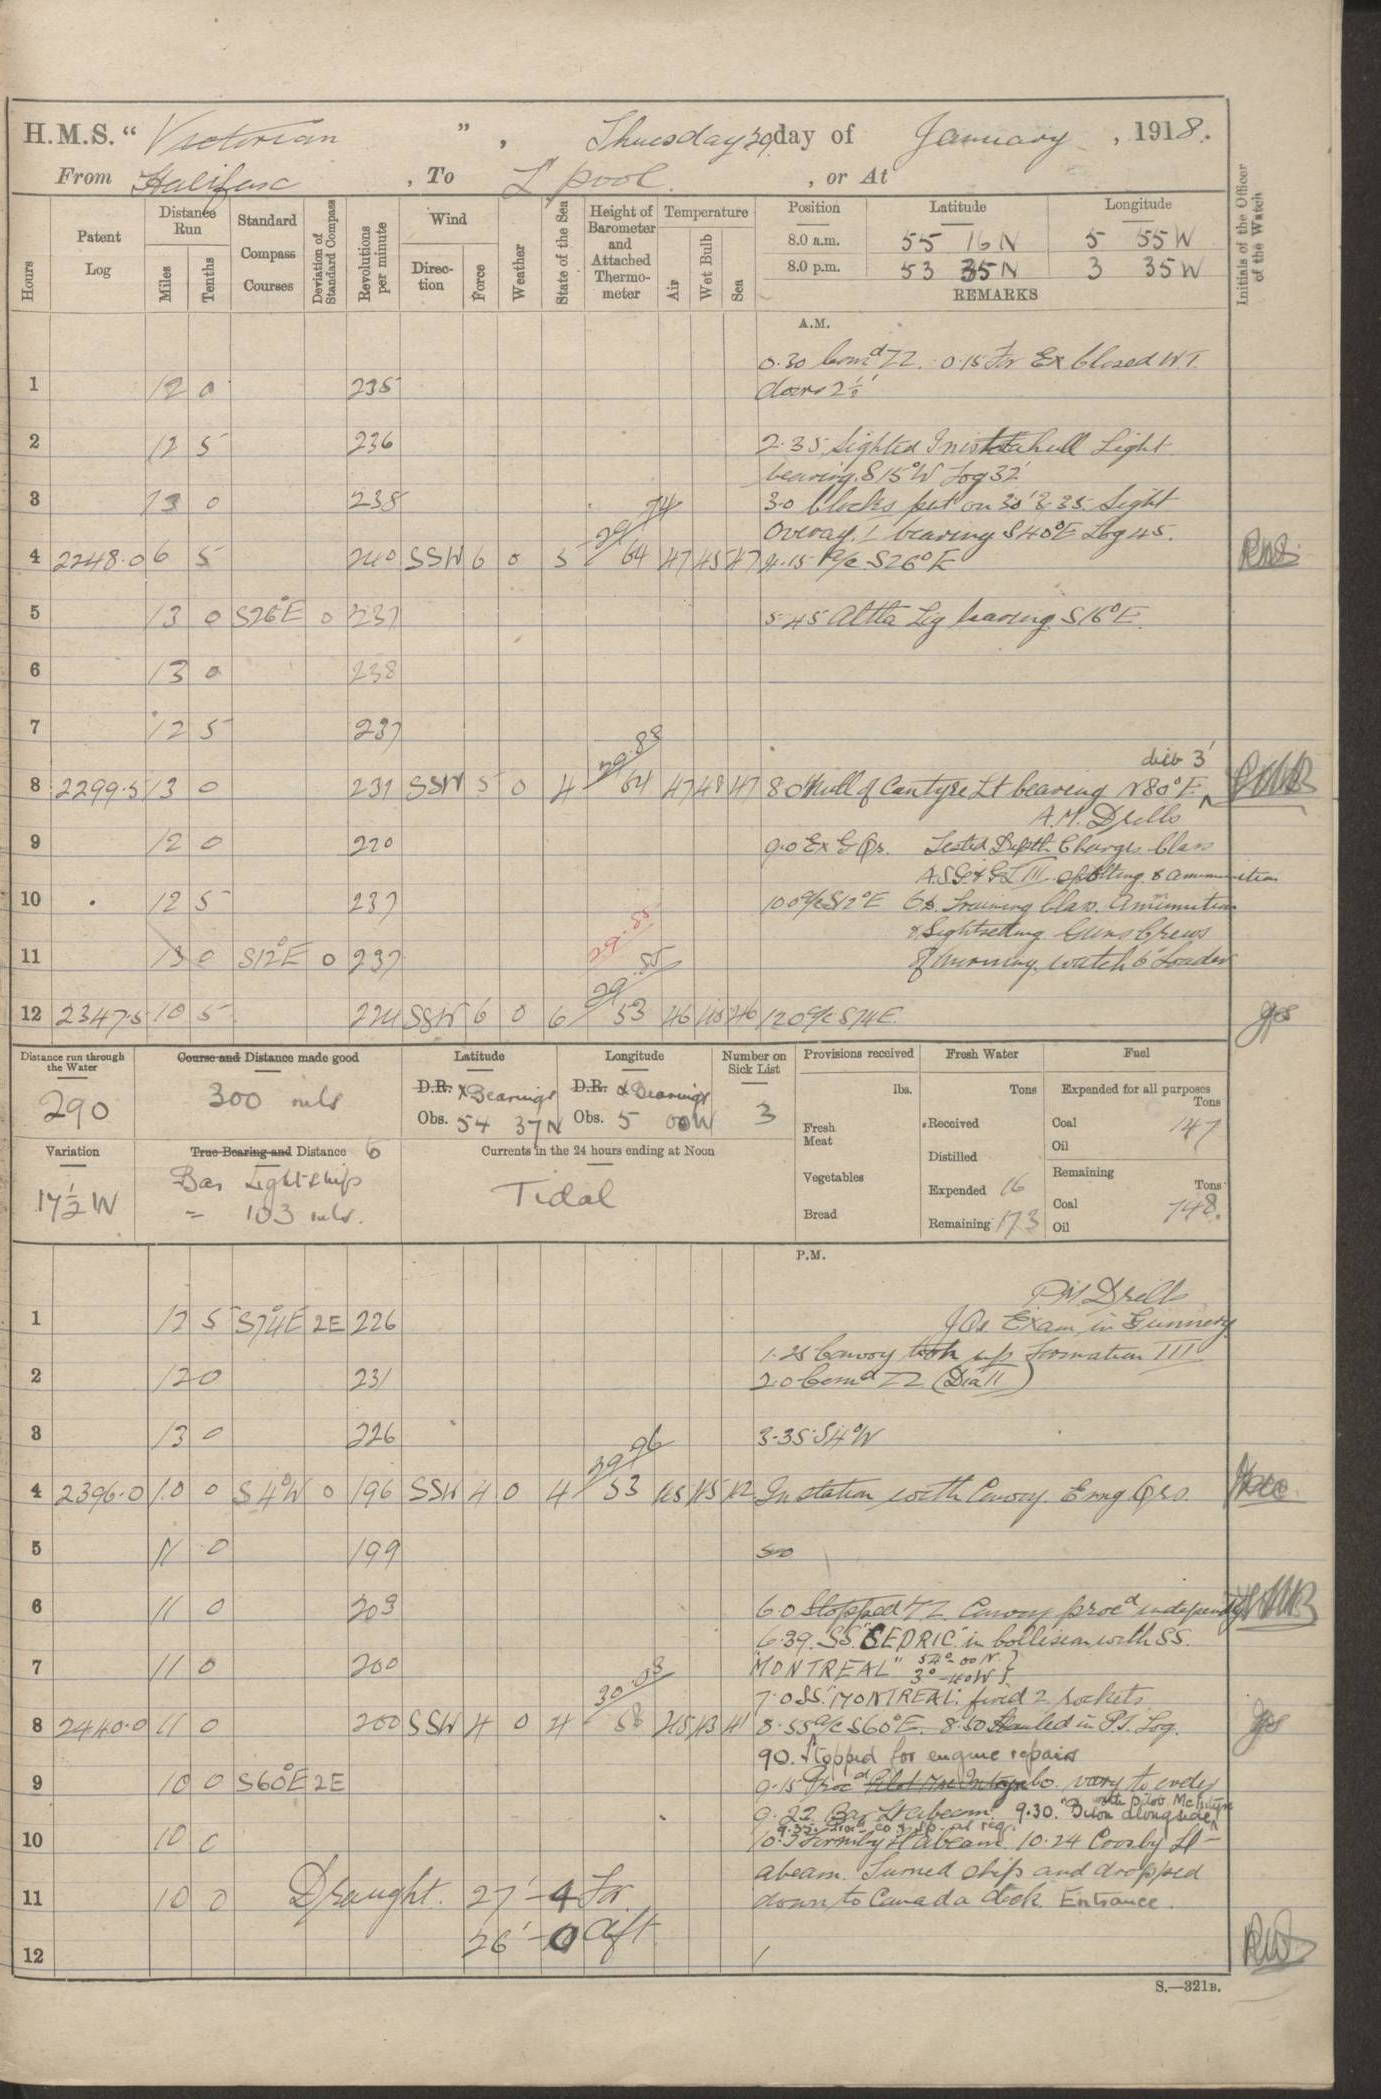 H.M.S. "Victorian", Thursday day of January, 1918.
From Halifax, To L'pool, or At
Hours
Patent Log
Distance Run
Miles
Tenths
Standard Compass Courses
Deviation of Standard Compass
Revolutions per minute
Wind
Direction
Force
Weather
State of the Sea
Height of Barometer and Attached Thermometer
Temperature
Air
Wet Bulb
Sea
Position Latitude Longitude
8.0 a.m. 55 16 N 5 55 W
8.0 p.m. 53 35 N 3 35 W
REMARKS
Initials of the Officer of the Watch
A.M.
0.30 Comd ZZ. 0.15 For Ex Closed W.T.
1 12 0 235 doors 2½'
2 12 5 236 2.35 Sighted Inishtrahull Light
bearing S15°W Log 32'
3 13 0 238 3.0 Clocks put on 30' 3.35 Light
bearing S40°E Log 45.
29.74
4 2248.0 6 5 240 SSW 6 0 5 64 47 45 47 4.15 A/c S26°E
5 13 0 S26°E 0 237 5.45 bearing S16°E.
6 13 0 238
7 12 5 237
29.88 dist 3'
8 2299.5 13 0 231 SSW 5 0 4 64 47 48 47 8.0 Mull of Cantyre Lt bearing N80°E.
A.M. Drills
9 12 0 220 9.0 Ex G Qs. Tested Depth Charges. Class
A.S.G. & G.L III spotting & ammunition
10 12 5 237 10.0 A/c S12°E 6". Training Class. Ammunition
& Sightsetting Guns Crews
29.55
11 13 0 S12°E 0 237 of morning watch 6" Loader
29.55
12 2347.5 10 5 224 SSW 6 0 6 53 46 45 46 12.0 A/c S74E.
Distance run through the Water
290
Course and Distance made good
300 mls
Latitude
D.R. & Bearings
Obs. 54 37N
Longitude
D.R. & Bearings
Obs. 5 00W
Number on Sick List
3
Variation
17½ W
True Bearing and Distance to
Bar Lightships
= 103 mls.
Currents in the 24 hours ending at Noon
Tidal
Provisions received
lbs.
Fresh Meat
Vegetables
Bread
Fresh Water
Tons
Received
Distilled
Expended 16
Remaining 173
Fuel
Expended for all purposes
Tons
Coal 147
Oil
Remaining
Tons
Coal 748.
Oil
P.M.
PM Drills
1 12 5 S74°E 2E 226 J.Os. Exam in Gunnery
1.25 Convoy took up formation III
2 12 0 231 2.0 Comd ZZ (Dia II)
3 13 0 226 3.35 S4°W
29.96
4 2396.0 10 0 S4°W 0 196 SSW 4 0 4 53 45 45 42 In station with Convoy. Evng Qrs.
5 11 0 199
6 11 0 203 6.0 Stopped ZZ. Convoy procd independly
6.39. SS "CEDRIC" in collision with SS.
7 11 0 200 "MONTREAL" 54°-00'N 3°-40'W}
7.0 SS. "MONTREAL" fired 2 rockets
30.03
8 2440.0 11 0 200 SSW 4 0 4 58 45 43 41 8.55 A/c S60°E. 8.50 Hauled in P.T. Log.
9.0. Stopped for engine repairs
9 10 0 S60°E 2E 9.15 Procd Co. vary to evdy
9.22 Bar Lt abeam. 9.30. alongside with pilot McIntyre
10 10 0 10.3 Formby Lt abeam. 10.24 Crosby Lt
abeam. Turned ship and dropped
11 10 0 down to Canada dock Entrance.
Draught. 27'-4 For.
26'-0 Aft
12
S.—321B.